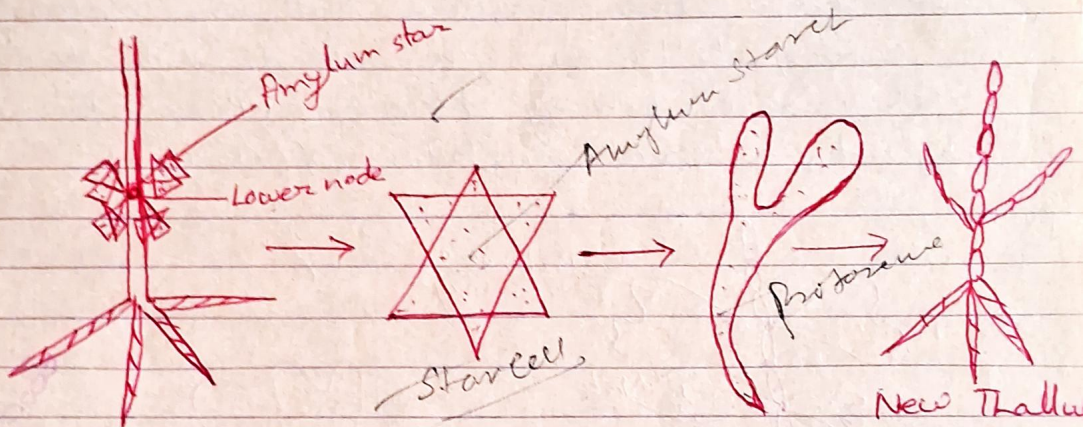 Amylum star
Lower node
Amylum starch
Star Cell,
Protoneme
New Thallu